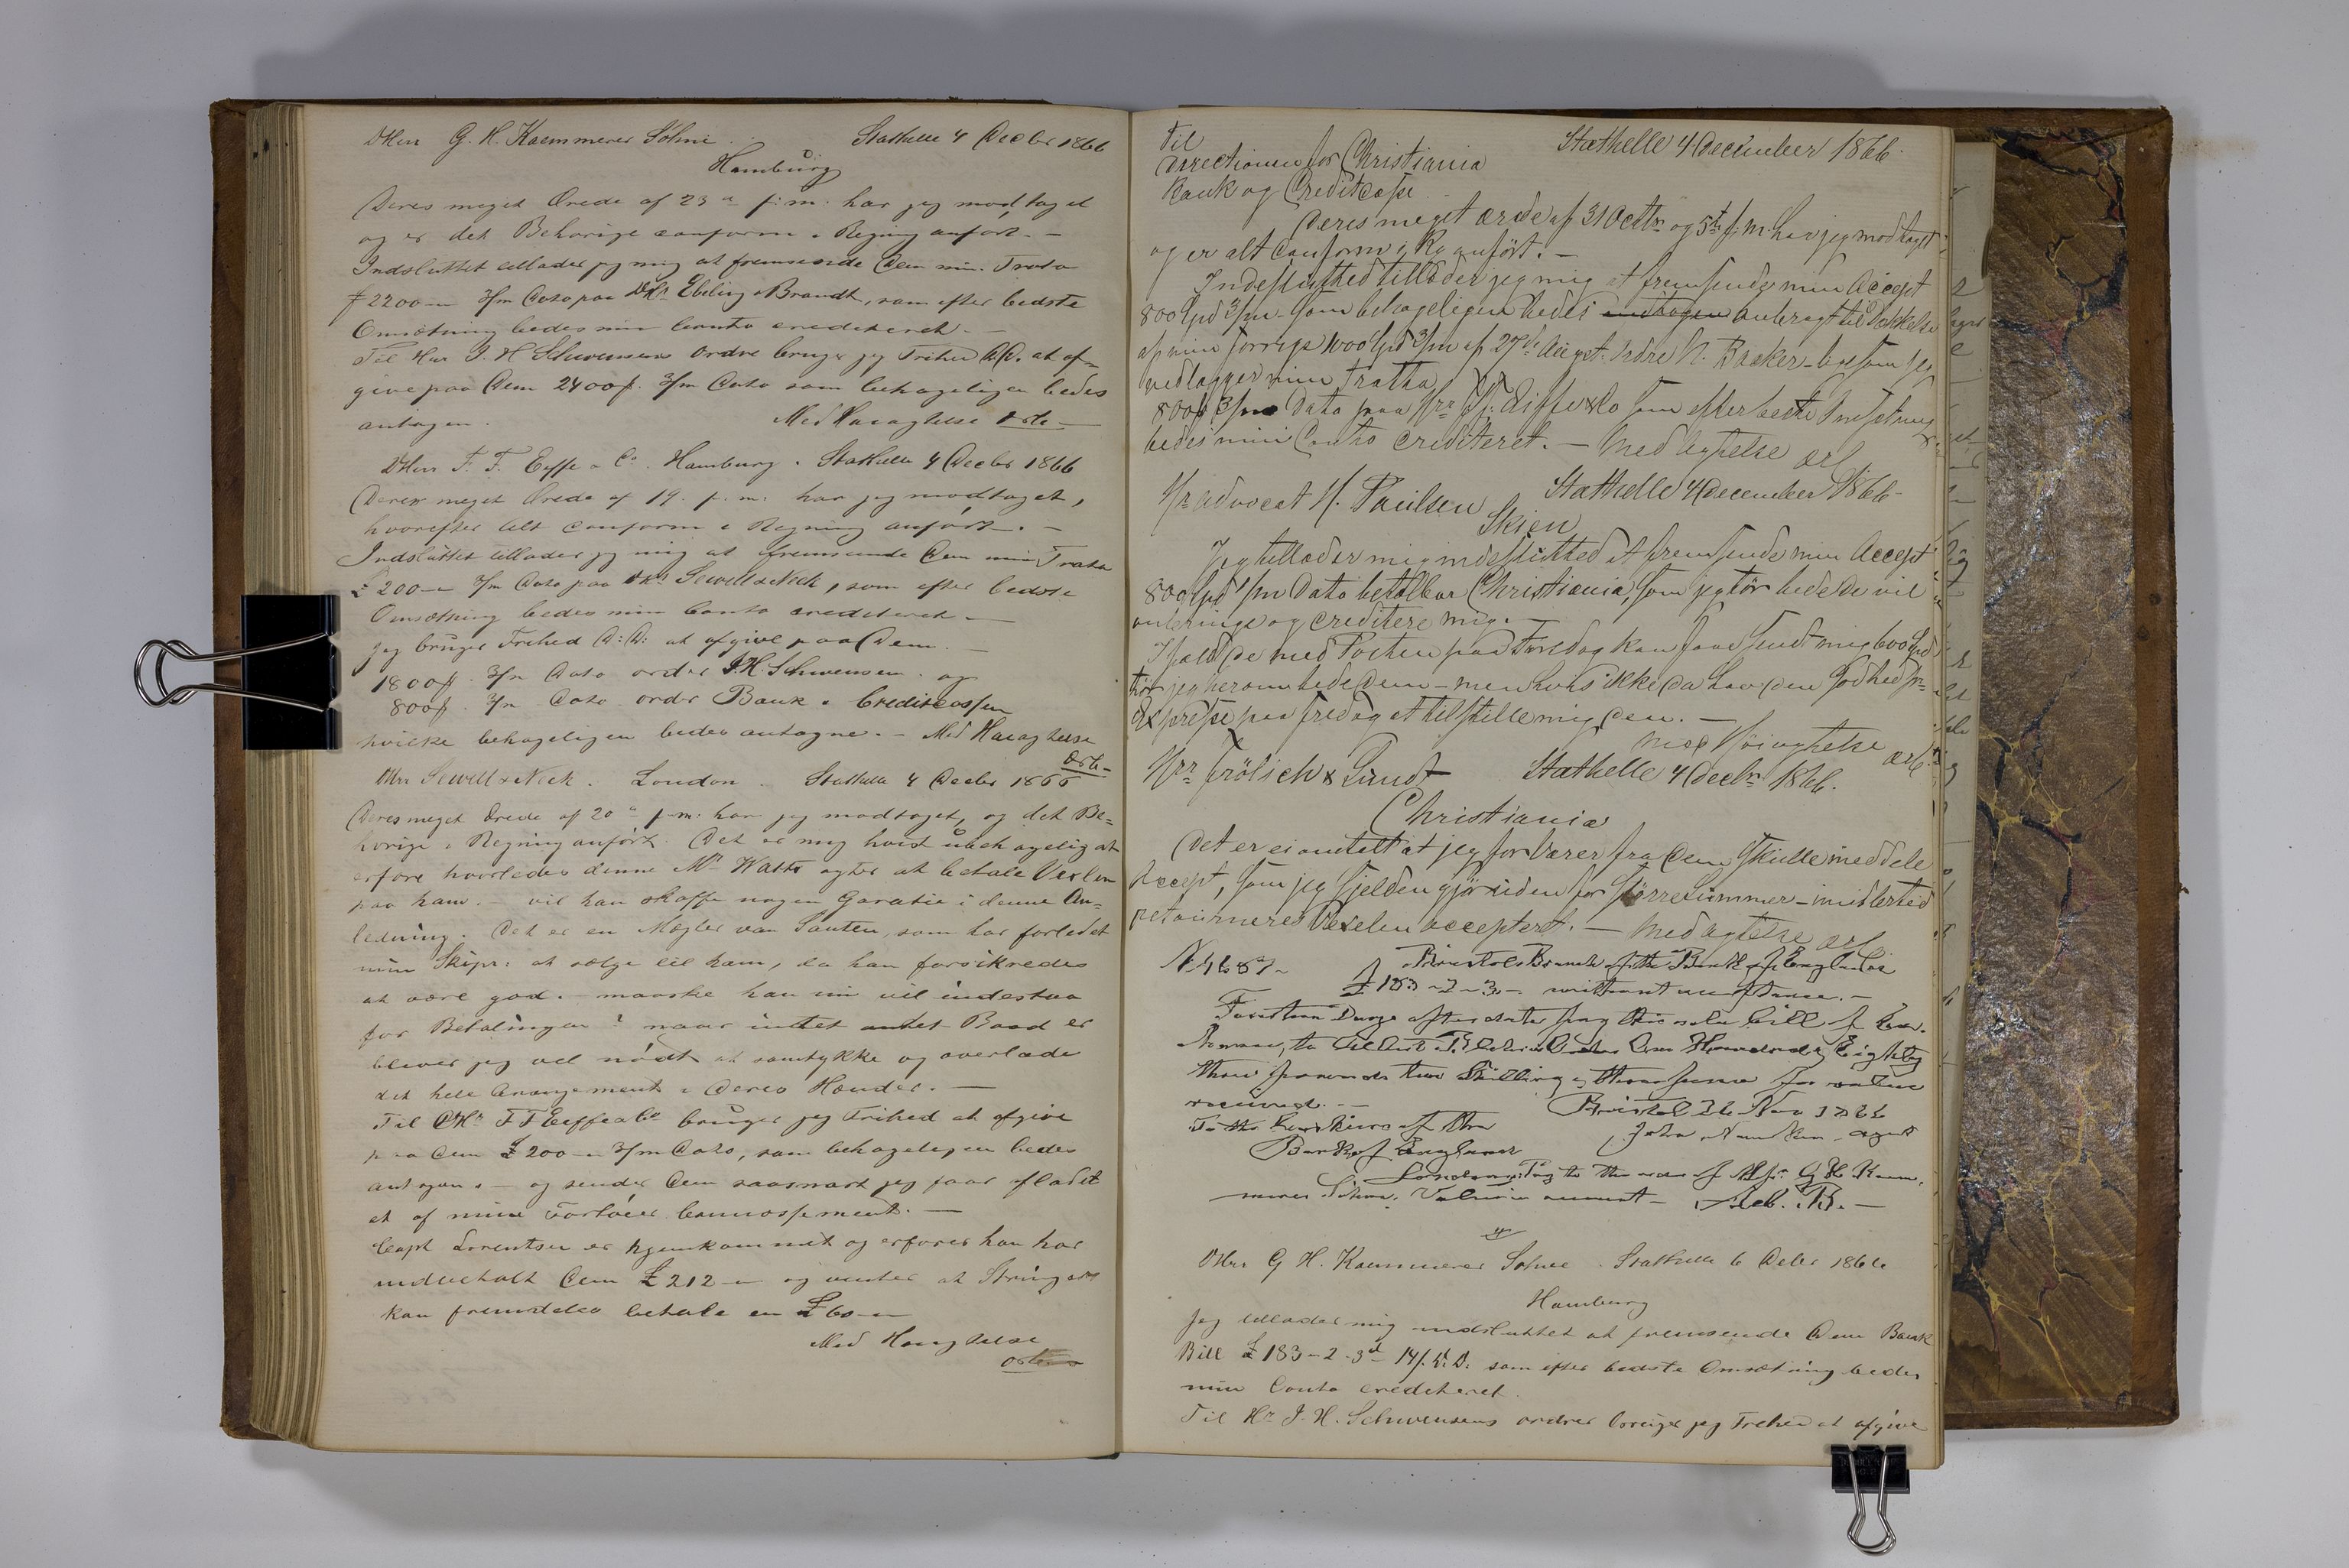 DHrr G. H. Kaemmerer Söhne. Stathelle 4 Decbr 1866
Hamburg
Deres meget Ærede af 23de f: m: har jeg modtaget
og er det Behørige conform i Regning anført. –
Indsluttet tillader jeg mig at fremsende Dem min Tratta
£ 2200 – 3/m Dato paa DHr Ebeling & Brandt, som efter bedste
Omsætning bedes min Conto crediteret –
Til Herr J. H. Schwensens Ordre bruger jeg Frihed D.D. at af=
give paa Dem 2400 ƒ. 3/m Dato som behageligen bedes
antagen. Med Høiagtelse Ærb. –
DHerr F. F. Eiffe & Co. Hamburg. Stathelle 4 Decbr 1866
Deres meget Ærede af 19. f. m: har jeg modtaget,
hvorefter Alt conform i Regning anført. –
Indsluttet tillader jeg mig at fremsende Dem min Tratta
£ 200 – 3/m Dato paa DHr Sewell & Neck, som efter bedste
Omsætning bedes min Conto crediteret –
Jeg bruger Frihed D:D: at afgive paa Dem. –
1800 ƒ. 3/m Dato ordre J. H. Schwensen. og
800 ƒ. 3/m Dato ordr Bank & Creditcassen
hvilke behageligen bedes antagne. – Med Høiagtelse
Ærb. –
DHrr Sewell & Neck. London. Stathelle 4 Decbr 1866
Deres meget Ærede af 20de f. m: har jeg modtaget, og det Be=
hørige i Regning anført. Det er mig høist ubehagelig at
erfare hvorledes denne Mr Watts agter at betale Vexlen
paa ham. – vil han skaffe nogen Garantie i denne An=
ledning. Det er en Mægler van Santen, som har forledet
min Skipr: at sælge til ham, da han forsikredes
at være god. – maaske han nu vil indestaa
for Betalingen? naar intet andet Raad er
bliver jeg vel nødt at samtykke og overlade
det hele Arrangement i Deres Hænder. –
Til DHr F F Eiffe & Co bruger jeg Frihed at afgive
paa Dem £ 200 – 3/m Dato, som behageligen bedes
antagen. – og sender Dem saasnart jeg faar afladet
et af mine Fartøier Connossement. –
Capt Lorentsen er hjemkommet og erfarer han har
indbetalt Dem £ 212 – og venter at Stringer
kan fremdeles betale en £ 60 –
Med Høiagtelse
Ærb.
Til Stathelle 4 December 1866.
Directionen for Christiania
Bank og Creditcasse –
Deres meget ærede af 31 Octbr og 5te f: m. har jeg modtaget
og er alt conform i Rg anført. –
Indeslutted tillader jeg mig at fremsende min Accept
800 Spd 3/m – som behageligen bedes antagen anbragt til Dækkelse
af min forrige 1000 Spd 3/m af 27de August. Ordre N. Backer – ligesom jeg
vedlægger min Tratta
800 ƒ 3/m Dato paa Hrr F. F. Eiffe & Co som efter bedste Omsætning
bedes min Conto crediteret. – Med Agtelse ærb
Hr Advocat H. Paulsen Stathelle 4 December 1866 –
Skien
Jeg tillader mig indeslutted at fremsende min Accept
800 Spd 1/m Dato betalbar Christiania, som jeg tør bede De vil
anbringe og creditere mig. –
Ifald De med Posten paa Fredag kan faae sendt mig 600 Spd
tør jeg herom bede Dem – men hvis ikke da hav den Godhed pr=
Expresse paa Fredag at tilstille mig dem. –
Med Høiagtelse ærb
Hrr Frölich & Lundt Stathelle 4 Decbr 1866.
Christiania
Det er ei omtalt at jeg forværer fra Dem skulle meddele
Accept, som jeg sjelden gjör uden for större Summer – imidlertid
retourneres Vexelen accepteret. – Med agtelse ærb
N 4687 – Bristol Branch of the Bank of England
£ 183 – 2 – 3 – without acceptance. –
Fourteen Days after date pay this sola bill of Exc.
to One Hundred & Eighty
three pounds two Shilling & three pence for value
received. – Bristol 26 Nov 1866
To the Cashiers of the John agent
Bank of England
London Pay to the order of Mssr. G H Kaem,
merer Söhne. Value in account –
DHrr G. H. Kaemmerer Sohne. Stathelle 6 Decbr 1866
Hamburg
Jeg tillader mig indsluttet at fremsende Dem Bank
Bill £ 183 – 2 – 3d – 14/d. D. som efter bedste Omsætning bedes
min Conto crediteret.
Til Hr J. H. Schwensens ordre bruger jeg Frihed at afgive